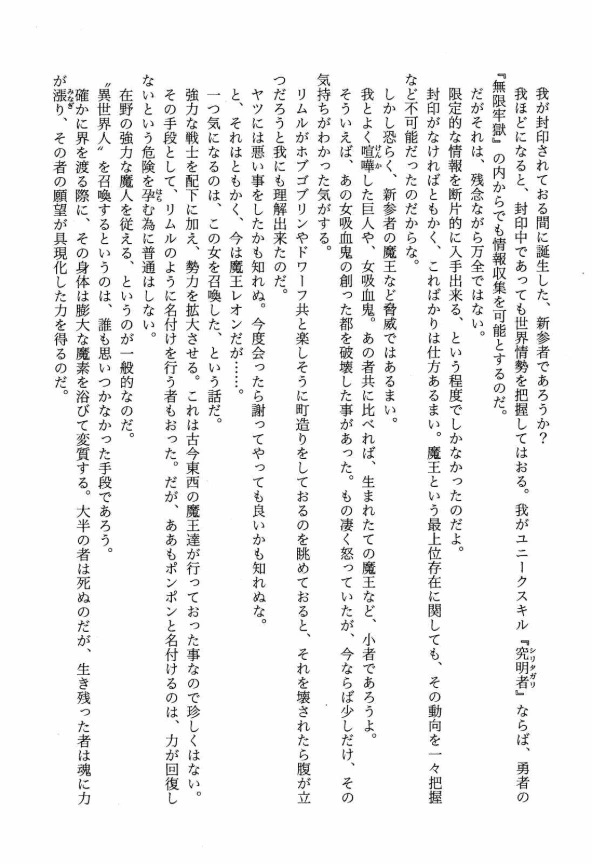 我が封印されておる間に誕生した、新参者であろうか？
我ほどになると、封印中であっても世界情勢を把握してはおる。我がユニークスキル『究明者』ならば、勇者の
シリタガリ
『無限牢獄』の内からでも情報収集を可能とするのだ。
だがそれは、残念ながら万全ではない。
限定的な情報を断片的に入手出来る、という程度でしかなかったのだよ。
封印がなければともかく、こればかりは仕方あるまい。魔王という最上位存在に関しても、その動向を一々把握
など不可能だったのだからな。
しかし恐らく、新参者の魔王など脅威ではあるまい。
我とよく喧嘩した巨人や、女吸血鬼。あの者共に比べれば、生まれたての魔王など、小者であろうよ。
けんか
そういえば、あの女吸血鬼の創った都を破壊した事があった。もの凄く怒っていたが、今ならば少しだけ、その
気持ちがわかった気がする。
リムルがホブゴブリンやドワーフ共と楽しそうに町造りをしておるのを眺めておると、それを壊されたら腹が立
つだろうと我にも理解出来たのだ。
ヤツには悪い事をしたかも知れぬ。今度会ったら謝ってやっても良いかも知れぬな。
と、それはともかく、今は魔王レオンだが……。
一つ気になるのは、この女を召喚した、という話だ。
強力な戦士を配下に加え、勢力を拡大させる。これは古今東西の魔王達が行っておった事なので珍しくはない。
その手段として、リムルのように名付けを行う者もおった。だが、ああもポンポンと名付けるのは、力が回復し
ないという危険を孕む為に普通はしない。
はら
在野の強力な魔人を従える、というのが一般的なのだ。
〝異世界人〟を召喚するというのは、誰も思いつかなかった手段であろう。
確かに界を渡る際に、その身体は膨大な魔素を浴びて変質する。大半の者は死ぬのだが、生き残った者は魂に力
が漲り、その者の願望が具現化した力を得るのだ。
みなぎ